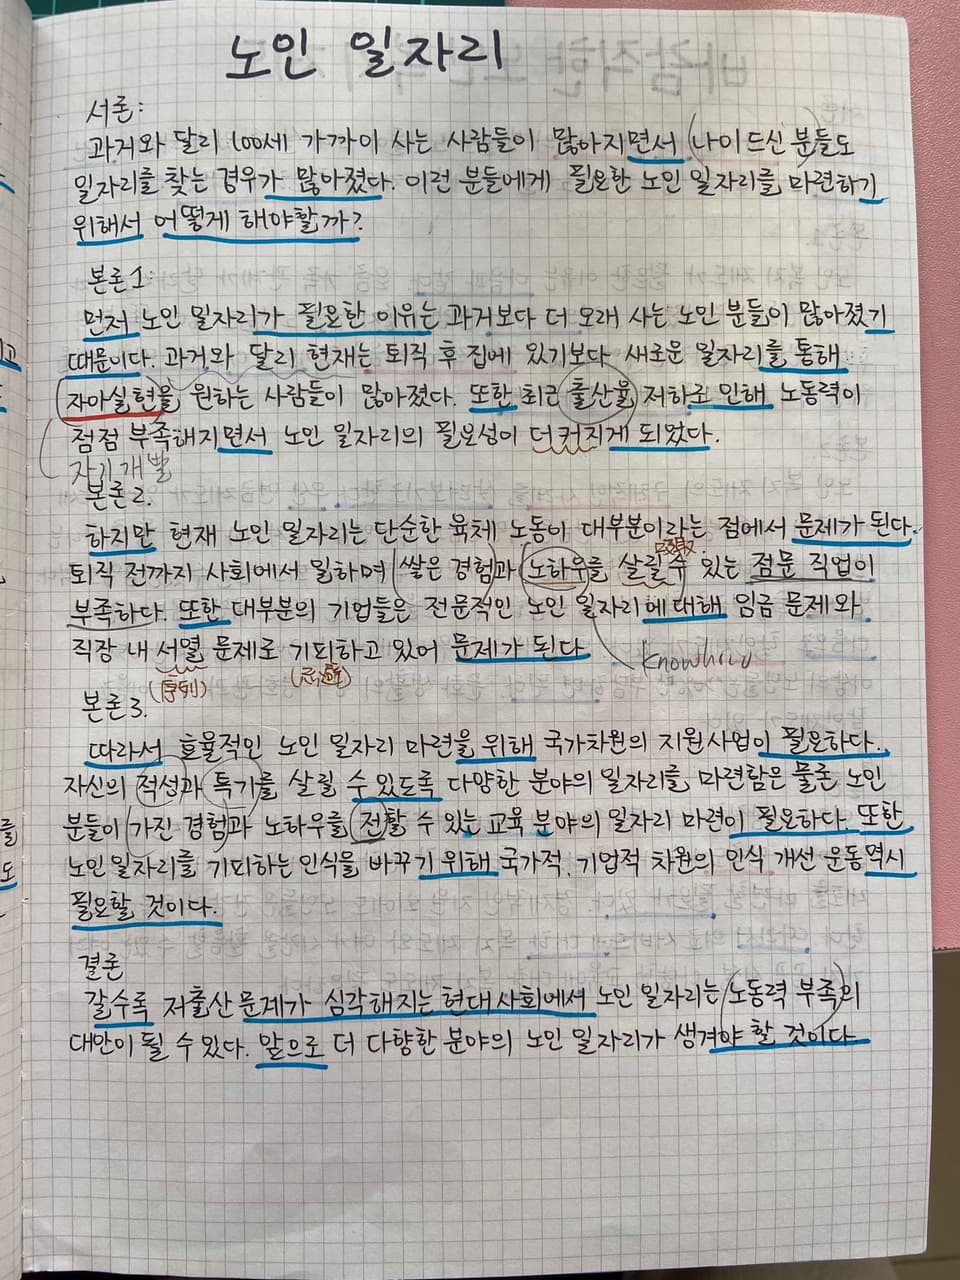 노인 일자리
서론:
과거와 달리 100세 가까이 사는 사람들이 많아지면서 나이 드신 분들도
일자리를 찾는 경우가 많아졌다. 이런 분들에게 필요한 노인 일자리를 마련하기
위해서 어떻게 해야할까?
본론1:
먼저 노인 일자리가 필요한 이유는 과거보다 더 오래 사는 노인 분들이 많아졌기
때문이다. 과거와 달리 현재는 퇴직 후 집에 있기보다 새로운 일자리를 통해
자아실현을 원하는 사람들이 많아졌다. 또한 최근 출산율 저하로 인해 노동력이
점점 부족해지면서 노인 일자리의 필요성이 더 커지게 되었다.
자기개발
본론2.
하지만 현재 노인 일자리는 단순한 육체 노동이 대부분이라는 점에서 문제가 된다.
퇴직 전까지 사회에서 일하며 쌓은 경험과 노하우를 살릴 수 있는 점문 직업이
부족하다. 또한 대부분의 기업들은 전문적인 노인 일자리에 대해 임금 문제와
직장 내 서열 문제로 기피하고 있어 문제가 된다
(序列) (忌避) knowhow
본론3.
따라서 효율적인 노인 일자리 마련을 위해 국가차원의 지원사업이 필요하다.
자신의 적성과 특기를 살릴 수 있도록 다양한 분야의 일자리를 마련함은 물론 노인
분들이 가진 경험과 노하우를 전할 수 있는 교육 분야의 일자리 마련이 필요하다. 또한
노인 일자리를 기피하는 인식을 바꾸기 위해 국가적, 기업적 차원의 인식 개선 운동역시
필요할 것이다.
결론
갈수록 저출산 문제가 심각해지는 현대 사회에서 노인 일자리는 노동력 부족의
대안이 될 수 있다. 앞으로 더 다향한 분야의 노인 일자리가 생겨야 할 것이다